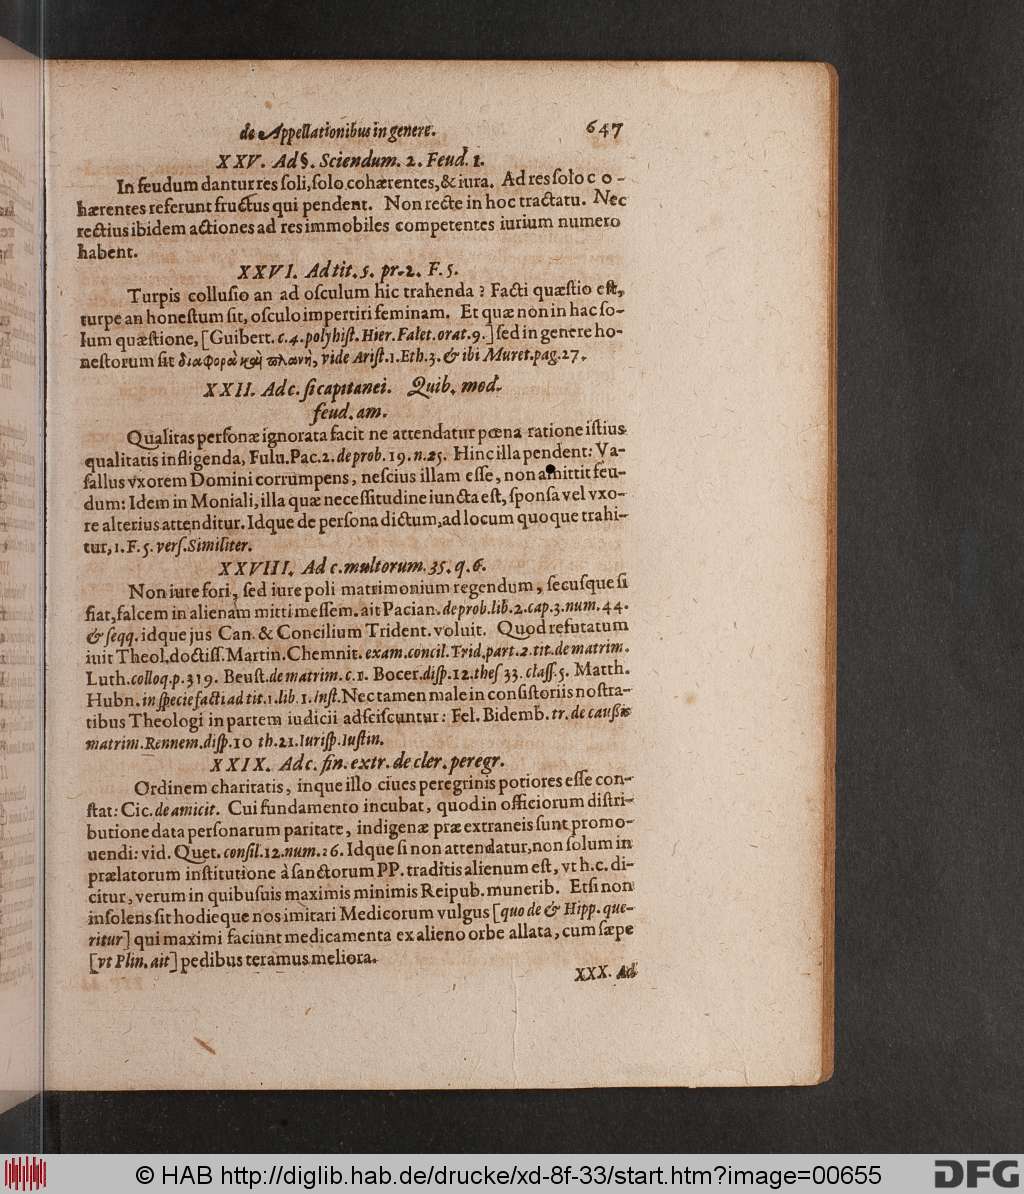 de Appellationibus in genere. 647
XXV. Ad §. Sciendum. 2. Feud. 1.
In feudum dantur res soli, solo cohærentes, & iura. Ad res solo co-
hærentes referunt fructus qui pendent. Non recte in hoc tractatu. Nec
rectius ibidem actiones ad res immobiles competentes iurium numero
habent.
XXVI. Ad tit. 5. pr. 2. F. 5.
Turpis collusio an ad osculum hic trahenda? Facti quæstio est,
turpe an honestum sit, osculo impertiri feminam. Et quæ non in hac so-
lum quæstione, [Guibert. c. 4. polyhist. Hier. Falet. orat. 9.] sed in genere ho-
nestorum sit διαφορὰ καὶ πλανὴ, vide Arist. 1. Eth. 3. & ibi Muret. pag. 27.
XXII. Ad c. si capitanei. Quib. mod.
feud. am.
Qualitas personæ ignorata facit ne attendatur pœna ratione istius
qualitatis infligenda, Fulu. Pac. 2. de prob. 19. n. 25. Hinc illa pendent: Va-
sallus vxorem Domini corrumpens, nescius illam esse, non amittit feu-
dum: Idem in Moniali, illa quæ necessitudine iuncta est, sponsa vel vxo-
re alterius attenditur. Idque de persona dictum, ad locum quoque trahi-
tur, 1. F. 5. vers. Similiter.
XXVIII. Ad c. multorum. 35. q. 6.
Non iure fori, sed iure poli matrimonium regendum, secusque si
fiat, falcem in alienam mitti messem. ait Pacian. de prob. lib. 2. cap. 3. num. 44.
& seqq. idque jus Can. & Concilium Trident. voluit. Quod refutatum
iuit Theol. doctiss. Martin. Chemnit. exam. concil. Trid. part. 2. tit. de matrim.
Luth. colloq. p. 319. Beust. de matrim. c. 1. Bocer. disp. 12. thes 33. class. 5. Matth.
Hubn. in specie facti ad tit. 1. lib. 1. Inst. Nec tamen male in consistoriis nostra-
tibus Theologi in partem iudicii adsciscuntur: Fel. Bidemb. tr. de caussis
matrim. Rennem. disp. 10 th. 21. Iurisp. Iustin.
XXIX. Ad c. fin. extr. de cler. peregr.
Ordinem charitatis, inque illo ciues peregrinis potiores esse con-
stat: Cic. de amicit. Cui fundamento incubat, quod in officiorum distri-
butione data personarum paritate, indigenæ præ extraneis sunt promo-
uendi: vid. Quet. consil. 12. num. 26. Idque si non attendatur, non solum in
prælatorum institutione à sanctorum PP. traditis alienum est, vt h. c. di-
citur, verum in quibusuis maximis minimis Reipub. munerib. Etsi non
insolens sit hodieque nos imitari Medicorum vulgus [quo de & Hipp. que-
ritur] qui maximi faciunt medicamenta ex alieno orbe allata, cum sæpe
[vt Plin. ait] pedibus teramus meliora.
XXX. Ad
© HAB http://diglib.hab.de/drucke/xd-8f-33/start.htm?image=00655
DFG